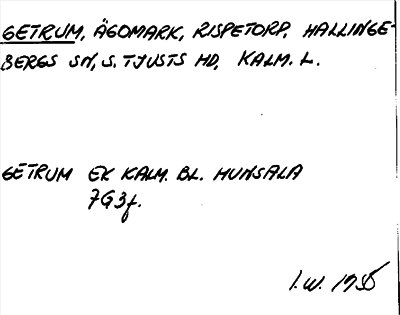 GETRUM, ÄGOMARK, RISPETORP, HALLINGE-
BERGS SN, S. TJUSTS HD, KALM. L.
GETRUM EK KALM. BL. HUNSALA
7G3f.
I.W. 1955